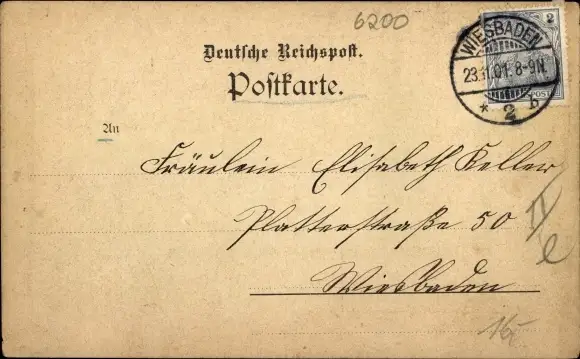 6200
Deutsche Reichspost.
Postkarte.
2
WIESBADEN
23.11.01. 8-9N.
* 2 b
POST
An
Fräulein Elisabeth Keller
Platterstraße 50
Wiesbaden
II
e
16,-